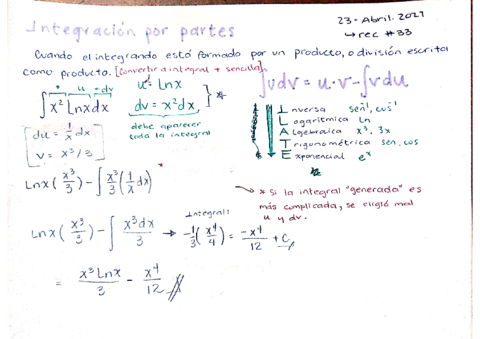 Integración por partes
23-Abril. 2021
↳ rec #33
Cuando el integrando está formado por un producto, o división escrita
como producto. [Convertir a integral + sencilla].
∫ x² Ln x dx
u dv
u = Ln x
dv = x² dx
debe aparecer
toda la integral
∫u dv = u·v - ∫v du
[du = 1/x dx
v = x³/3]
I Inversa sen⁻¹, cos⁻¹
L Logarítmica Ln
A Algebraica x³, 3x
T Trigonométrica sen, cos
E Exponencial eˣ
Ln x (x³/3) - ∫ x³/3 (1/x dx)
* Si la integral "generada" es
más complicada, se eligió mal
u y dv.
Integral:
Ln x (x³/3) - ∫ x³dx/3 → -1/3 (x⁴/4) = -x⁴/12 + C
= x³ Ln x/3 - x⁴/12